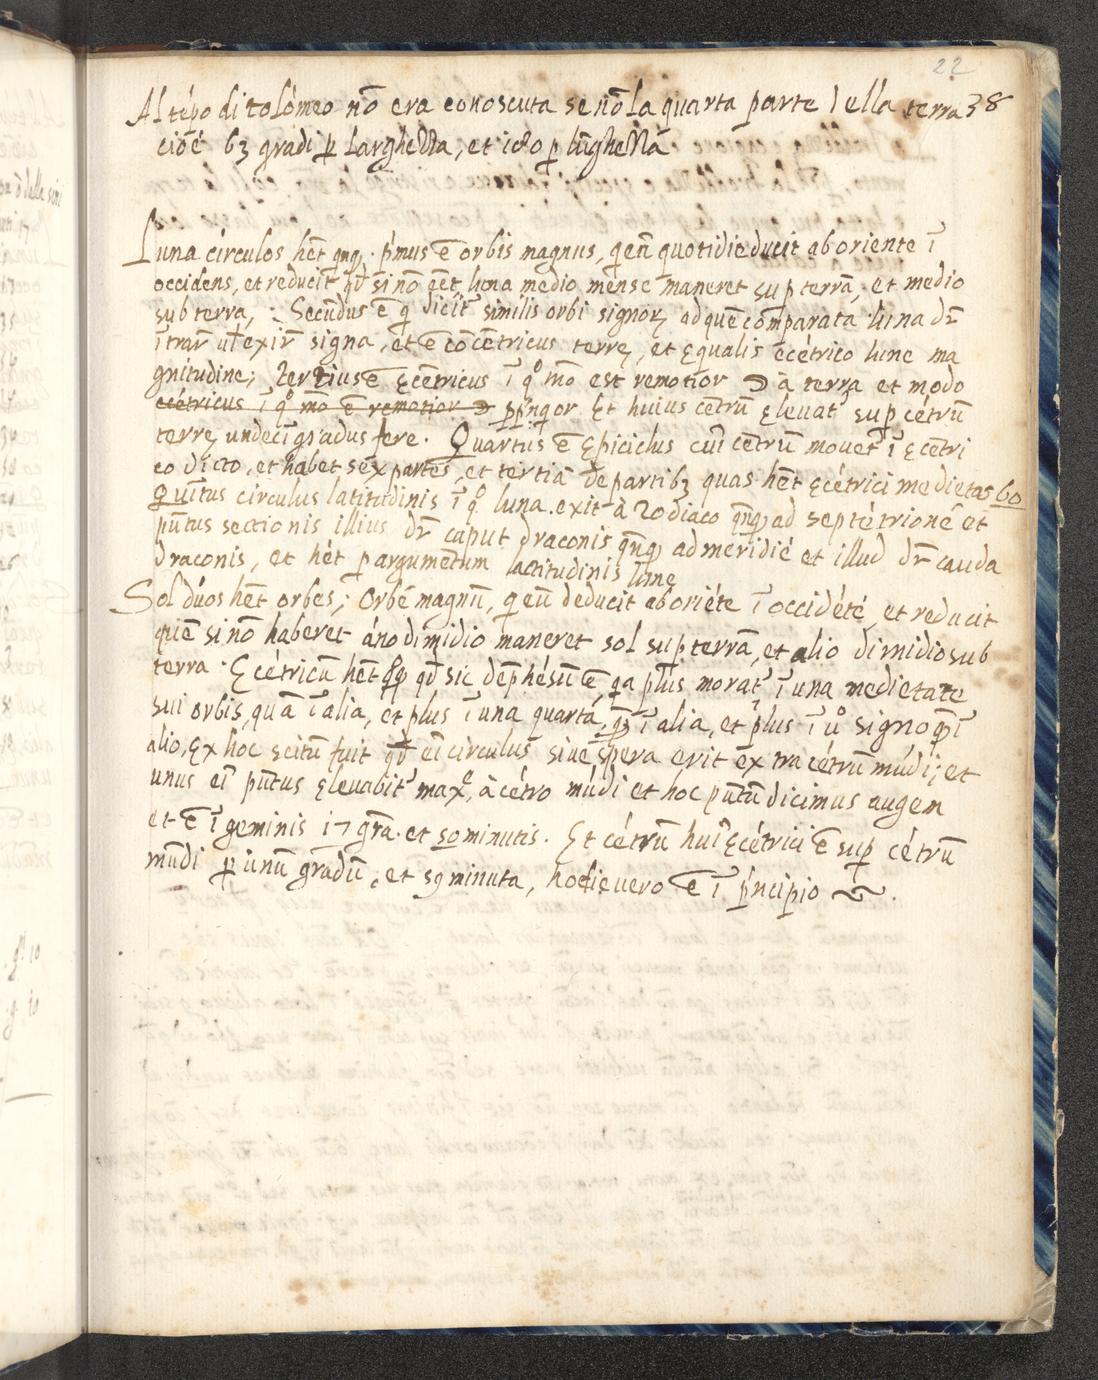 22
Al tẽpo di tolómeo nõ era conoscuta se nõ la quarta parte della terra 38
cioé 63 gradi p larghezza, et 180 p lũghezza
Luna círculos hẽt qnq. pꝰmus ẽ orbis magnus, q eũ quotidie ducit ab oriente ĩ
occidens, et reducit qđ si nõ eẽt luna medio mense maneret sup terrã, et medio
sub terra, Secũdus ẽ q dicit̃ similis orbi signoꝝ ad quẽ comparata luna dr̃
ĩtrar̃ ul̃ exir̃ signa, et ẽ cõcẽtricus terrę, et ęqualis ęcẽtrico lune ma
gnitudine; tertius ẽ ęcẽtricus ĩ qº mõ est remotior à terra et modo
ecẽtricus ĩ qº mõ ẽ remotior ppĩnqor Et huius cẽtrũ eleuat̃ sup cẽtrũ
terrę undecĩ gradus fere. Quartus ẽ Epiciclus cui cẽtrũ mouet̃ ĩ ęcẽtri
co dicto, et habet sex partes, et tertiã de partibꝫ quas hẽt ęcẽtrici medietas 60
Quĩtus circulus latitudinis ĩ qº luna exit à zodiaco qñqꝫ ad septẽtrionẽ et
pũtus sectionis illius dr̃ caput draconis qñqꝫ ad meridiẽ et illud dr̃ cauda
draconis, et hẽt p argumẽtum latitudinis lune
Sol dúos hẽt orbes; Orbẽ magnũ, q eũ deducit ab oriẽte ĩ occidẽtẽ, et reducit
quẽ si nõ haberet áno dimidio maneret sol sup terrã, et alio dimidio sub
terra. Ecẽtricũ hẽt qđ sic dephẽsũ ẽ, qa plus morat̃ ĩ una medietate
sui orbis, quã ĩ alia, et plus ĩ una quarta, q̃ ĩ alia, et plus ĩ uº signo q̃ ĩ
alio, Ex hoc scitũ fuit qđ ei circulus siue spera erit extra cẽtrũ mũdi; et
unus ei pũtus eleuabit̃ max.e à cẽtro mũdi et hoc pũtũ dicimus augem
et ẽ ĩ geminis 17 gra. et 50 minutis. Et cẽtrũ huiꝰ ęcẽtrici ẽ sup cẽtrũ
mũdi p unũ gradũ, et 59 minuta, hodie uero ẽ ĩ pꝰncipio